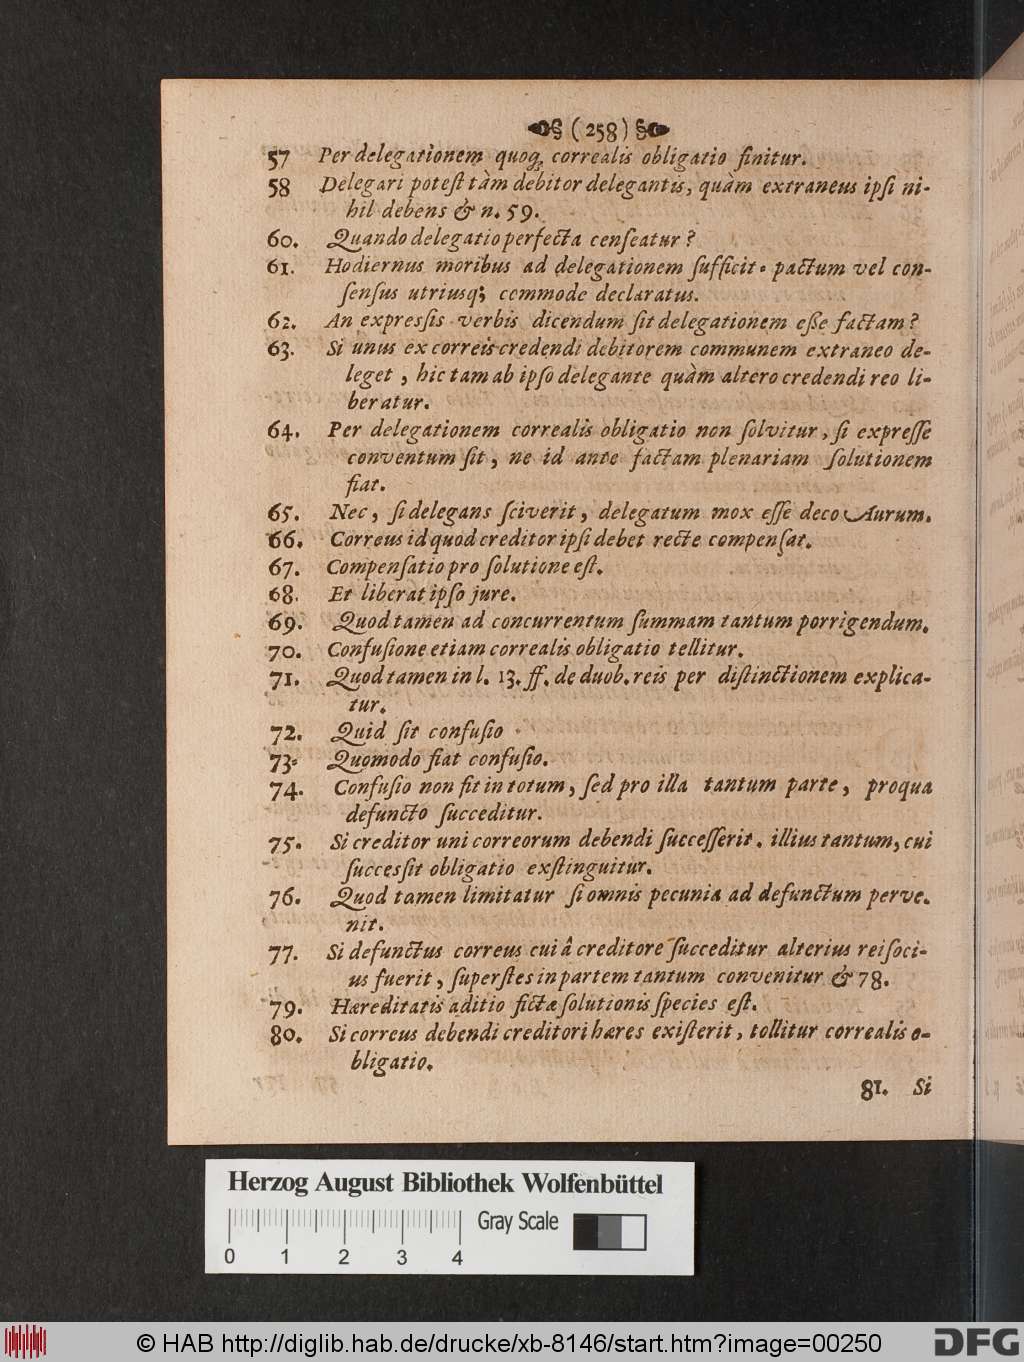 (258)
57 Per delegationem quoq; correalis obligatio finitur.
58 Delegari potest tàm debitor delegantis, quàm extraneus ipsi ni-
hil debens & n. 59.
60. Quando delegatio perfecta censeatur?
61. Hodiernus moribus ad delegationem sufficit. pactum vel con-
sensus utriusq; commode declaratus.
62. An expressis verbis dicendum sit delegationem esse factam?
63. Si unus ex correis credendi debitorem communem extraneo de-
leget, hic tam ab ipso delegante quàm altero credendi reo li-
beratur.
64. Per delegationem correalis obligatio non solvitur, si expresse
conventum sit, ne id ante factam plenariam solutionem
fiat.
65. Nec, si delegans sciverit, delegatum mox esse deco
66. Correus id quod creditor ipsi debet recte compensat.
67. Compensatio pro solutione est.
68. Et liberat ipso jure.
69. Quod tamen ad concurrentum summam tantum porrigendum.
70. Confusione etiam correalis obligatio tellitur.
71. Quod tamen in l. 13. ff. de duob. reis per distinctionem explica-
tur.
72. Quid sit confusio
73. Quomodo fiat confusio.
74. Confusio non fit in totum, sed pro illa tantum parte, pro qua
defuncto succeditur.
75. Si creditor uni correorum debendi successerit. illius tantum, cui
successit obligatio exstinguitur.
76. Quod tamen limitatur si omnis pecunia ad defunctum perve.
nit.
77. Si defunctus correus cui â creditore succeditur alterius rei soci-
us fuerit, superstes in partem tantum convenitur & 78.
79. Hæreditatis aditio fictæ solutionis species est.
80. Si correus debendi creditori hæres existerit, tollitur correalis o-
bligatio.
81. Si
Herzog August Bibliothek Wolfenbüttel
Gray Scale
0 1 2 3 4
© HAB http://diglib.hab.de/drucke/xb-8146/start.htm?image=00250
DFG